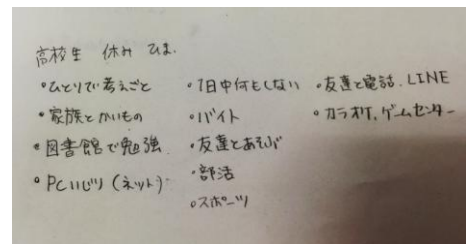 高校生 休み ひま.
・ひとりで考えごと
・家族とかいもの
・図書館で勉強
・PCいじり(ネット)
・1日中何もしない
・バイト
・友達とあそぶ
・部活
・スポーツ
・友達と電話. LINE
・カラオケ, ゲームセンター